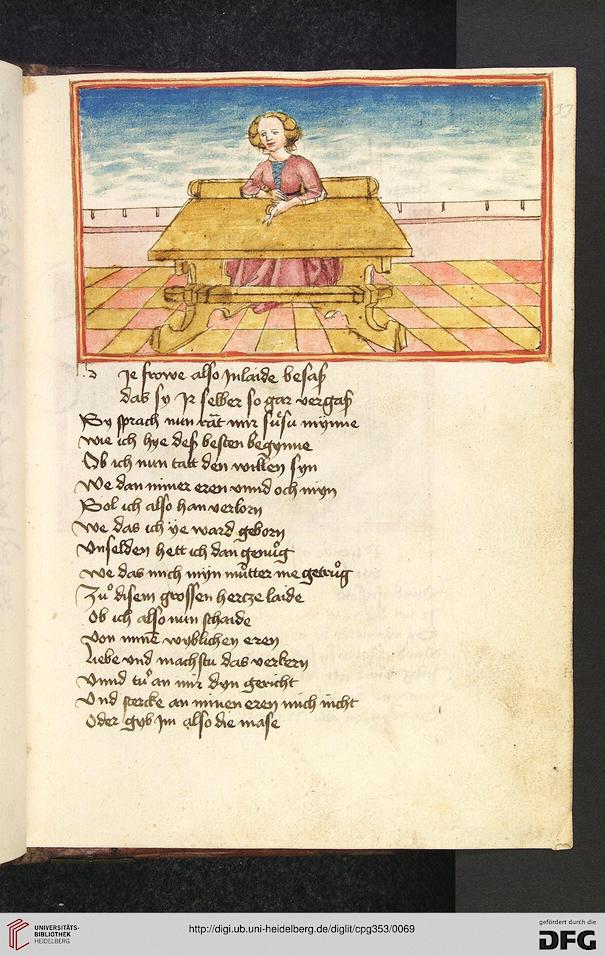 Je frowe also Inlaide besaß
das sy Jr selber so gar vergaß
Sy sprach nun rät mir süsu mynne
wie ich hye deß besten begynne
Ob ich nun tätt den willen syn
We dan miner eren vnnd och myn
Sol ich also han verlorn
we das ich ye ward geborn
Vnselden hett ich dan genuͦg
we das mich myn muͦtter ine getruͦg
Zuͦ disem grossen hertze laide
Ob ich also nun schaide
von mine wyblichen eren
Liebe vnd machstu das verkern
Vnnd tuͦ an mir dyn gericht
Vnd stercke an minen eren mich nicht
Oder gyb Im also die mase
UNIVERSITÄTS-
BIBLIOTHEK
HEIDELBERG
http://digi.ub.uni-heidelberg.de/diglit/cpg353/0069
gefördert durch die
DFG